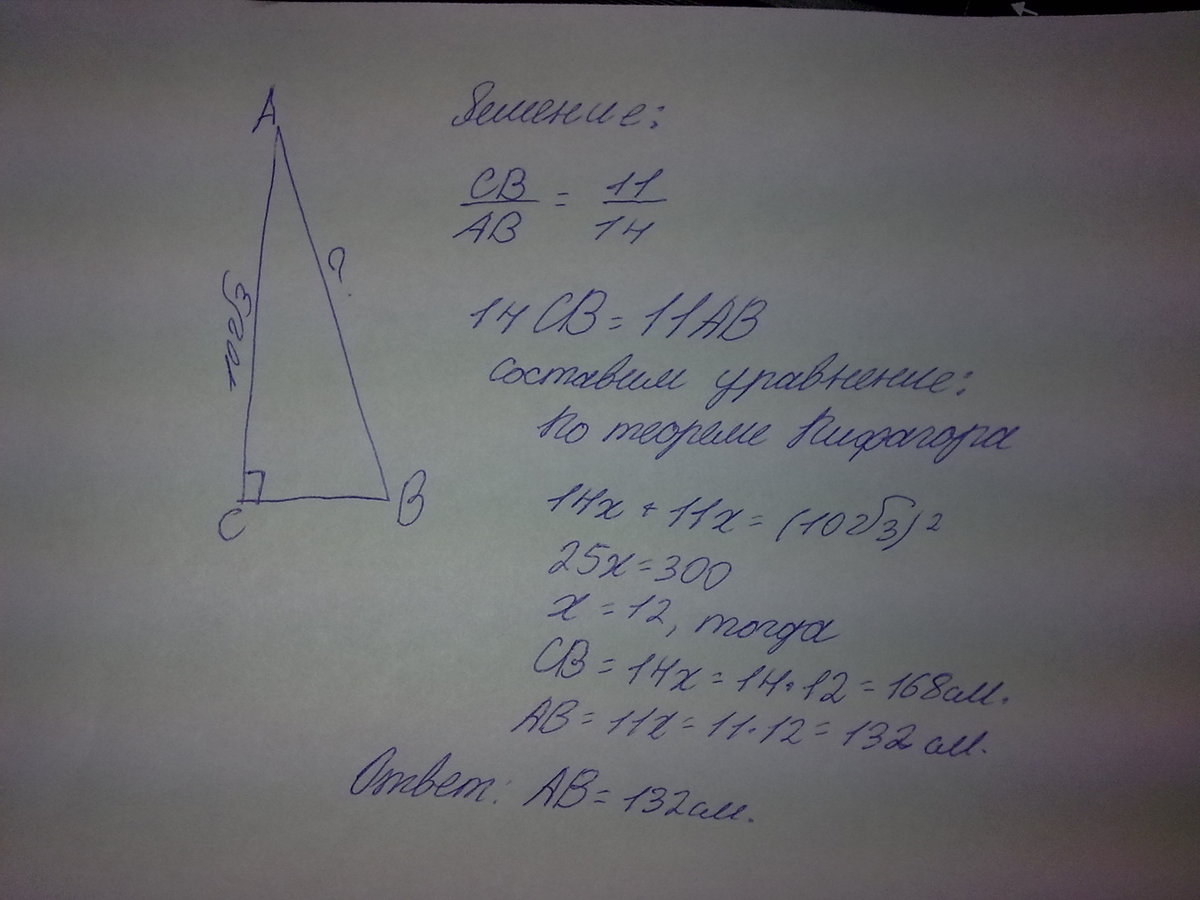 A
10√3
?
C
B
Решение:
CB/AB = 11/14
14 CB = 11AB
составим уравнение:
По теореме Пифагора
14x + 11x = (10√3)²
25x = 300
x = 12, тогда
CB = 14x = 14·12 = 168 см.
AB = 11x = 11·12 = 132 см.
Ответ: AB = 132 см.